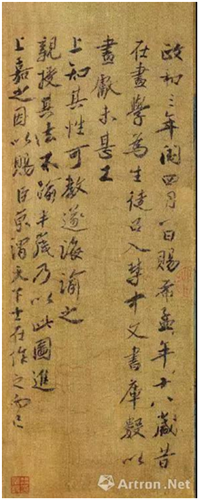 政和三年閏四月一日賜希孟年十八歲昔
在畫學為生徒召入禁中文書庫數以
畫獻未甚工
上知其性可教遂誨諭之
親授其法不踰半歲乃以此圖進
上嘉之因以賜臣京謂天下士在作之而已
Artron.Net